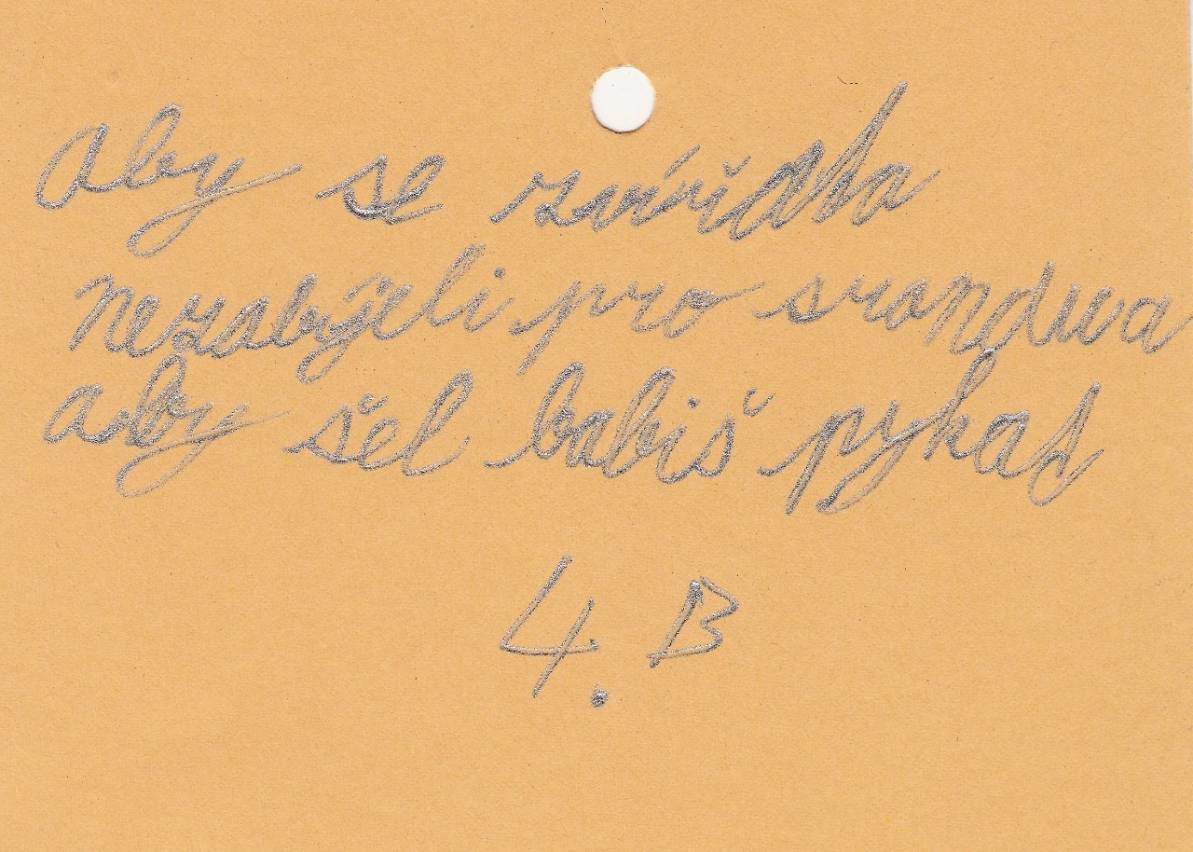 aby se zvířatka
nezabíjeli pro srandu a
aby šel babiš pykat
4. B